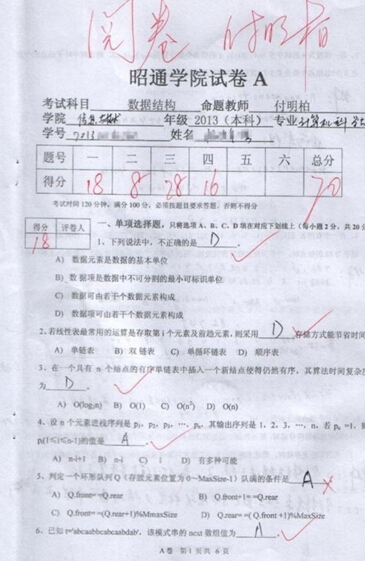 阅卷 付明柏
昭通学院试卷 A
考试科目 数据结构 命题教师 付明柏
学院 信息技术 年级 2013（本科） 专业 计算机科学
学号 2013 姓名
题号 一 二 三 四 五 六 总分
得分 18 8 28 16 70
考试时间 120 分钟，满分 100 分，必须按题目要求答题，否则不得分
得分 评卷人
18
一、单项选择题，只将选项 A、B、C、D 填在对应下划线上（每小题 2 分，共 20
1、下列说法中，不正确的是 D 。
A) 数据元素是数据的基本单位
B) 数据项是数据中不可分割的最小可标识单位
C) 数据可由若干个数据元素构成
D) 数据项可由若干个数据元素构成
2.若线性表最常用的运算是存取第 i 个元素及前趋元素,则采用 D 存储方式能节省时间
A) 单链表 B) 双链表 C) 单循环链表 D) 顺序表
3、在一个具有 n 个结点的有序单链表中插入一个新结点使得仍然有序，其算法时间复杂度
为 D 。
A) O(log₂n) B) O(1) C) O(n²) D) O(n)
4、设 n 个元素进栈序列是 p₁，p₂，p₃，…，pₙ，其输出序列是 1，2，3，…，n，若 pₙ =1，则
pᵢ(1≤i≤n-1)的值是 A 。
A) n-i+1 B) n-i C) i D) 有多种可能
5、判定一个环形队列 Q（存放元素位置为 0～MaxSize-1）队满的条件是 A
A) Q.front==Q.rear B) Q.front+1==Q.rear
C) Q.front==(Q.rear+1)%MmaxSize D) Q.rear==( Q.front +1)%MaxSize
6、已知 t='abcaabbcabcaabdab'，该模式串的 next 数组值为 A 。
A 卷 第 1 页 共 6 页